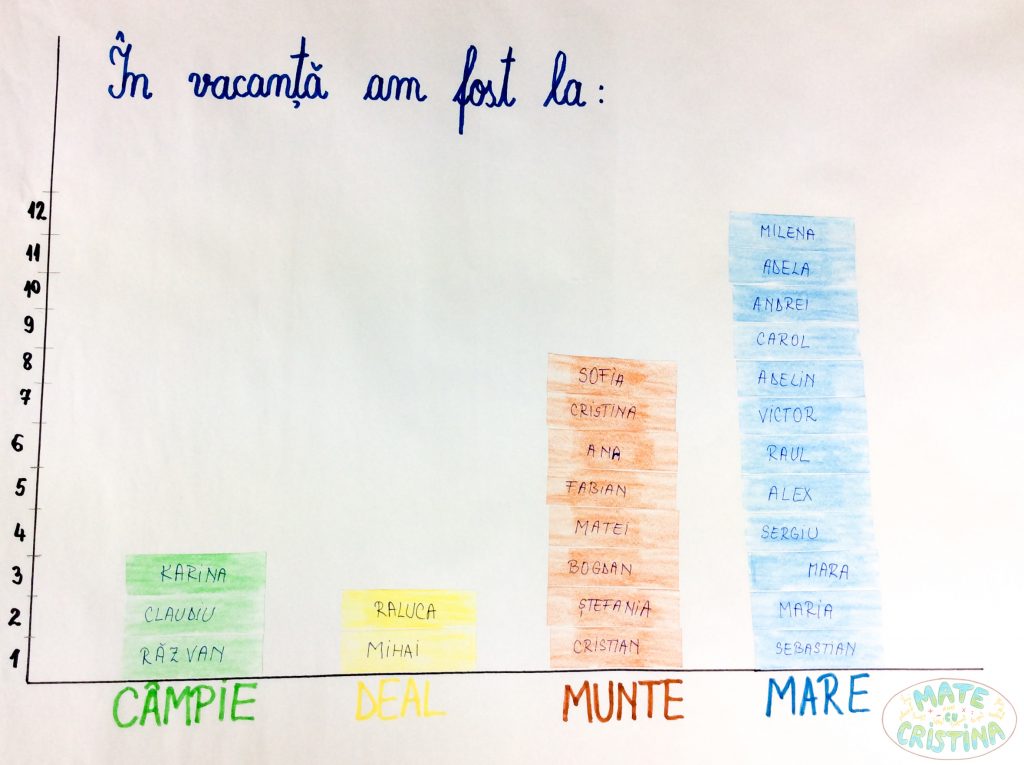 În vacanță am fost la:
12
11
10
9
8
7
6
5
4
3
2
1
KARINA
CLAUDIU
RĂZVAN
CÂMPIE
RALUCA
MIHAI
DEAL
SOFIA
CRISTINA
ANA
FABIAN
MATEI
BOGDAN
ȘTEFANIA
CRISTIAN
MUNTE
MILENA
ADELA
ANDREI
CAROL
ADELIN
VICTOR
RAUL
ALEX
SERGIU
MARA
MARIA
SEBASTIAN
MARE
MATE
CU
CRISTINA